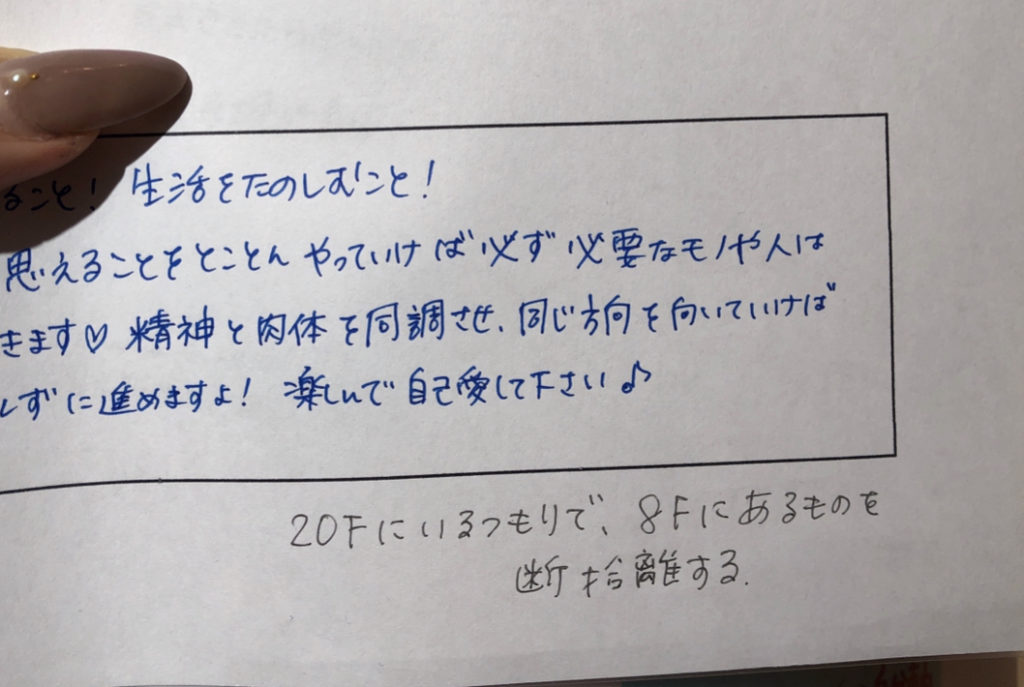 ること! 生活をたのしむこと!
思えることをとことんやっていけば必ず必要なモノや人は
きます♡ 精神と肉体を同調させ、同じ方向を向いていけば
しずに進めますよ! 楽しんで自己愛して下さい♪
20Fにいるつもりで、8Fにあるものを
断捨離する.